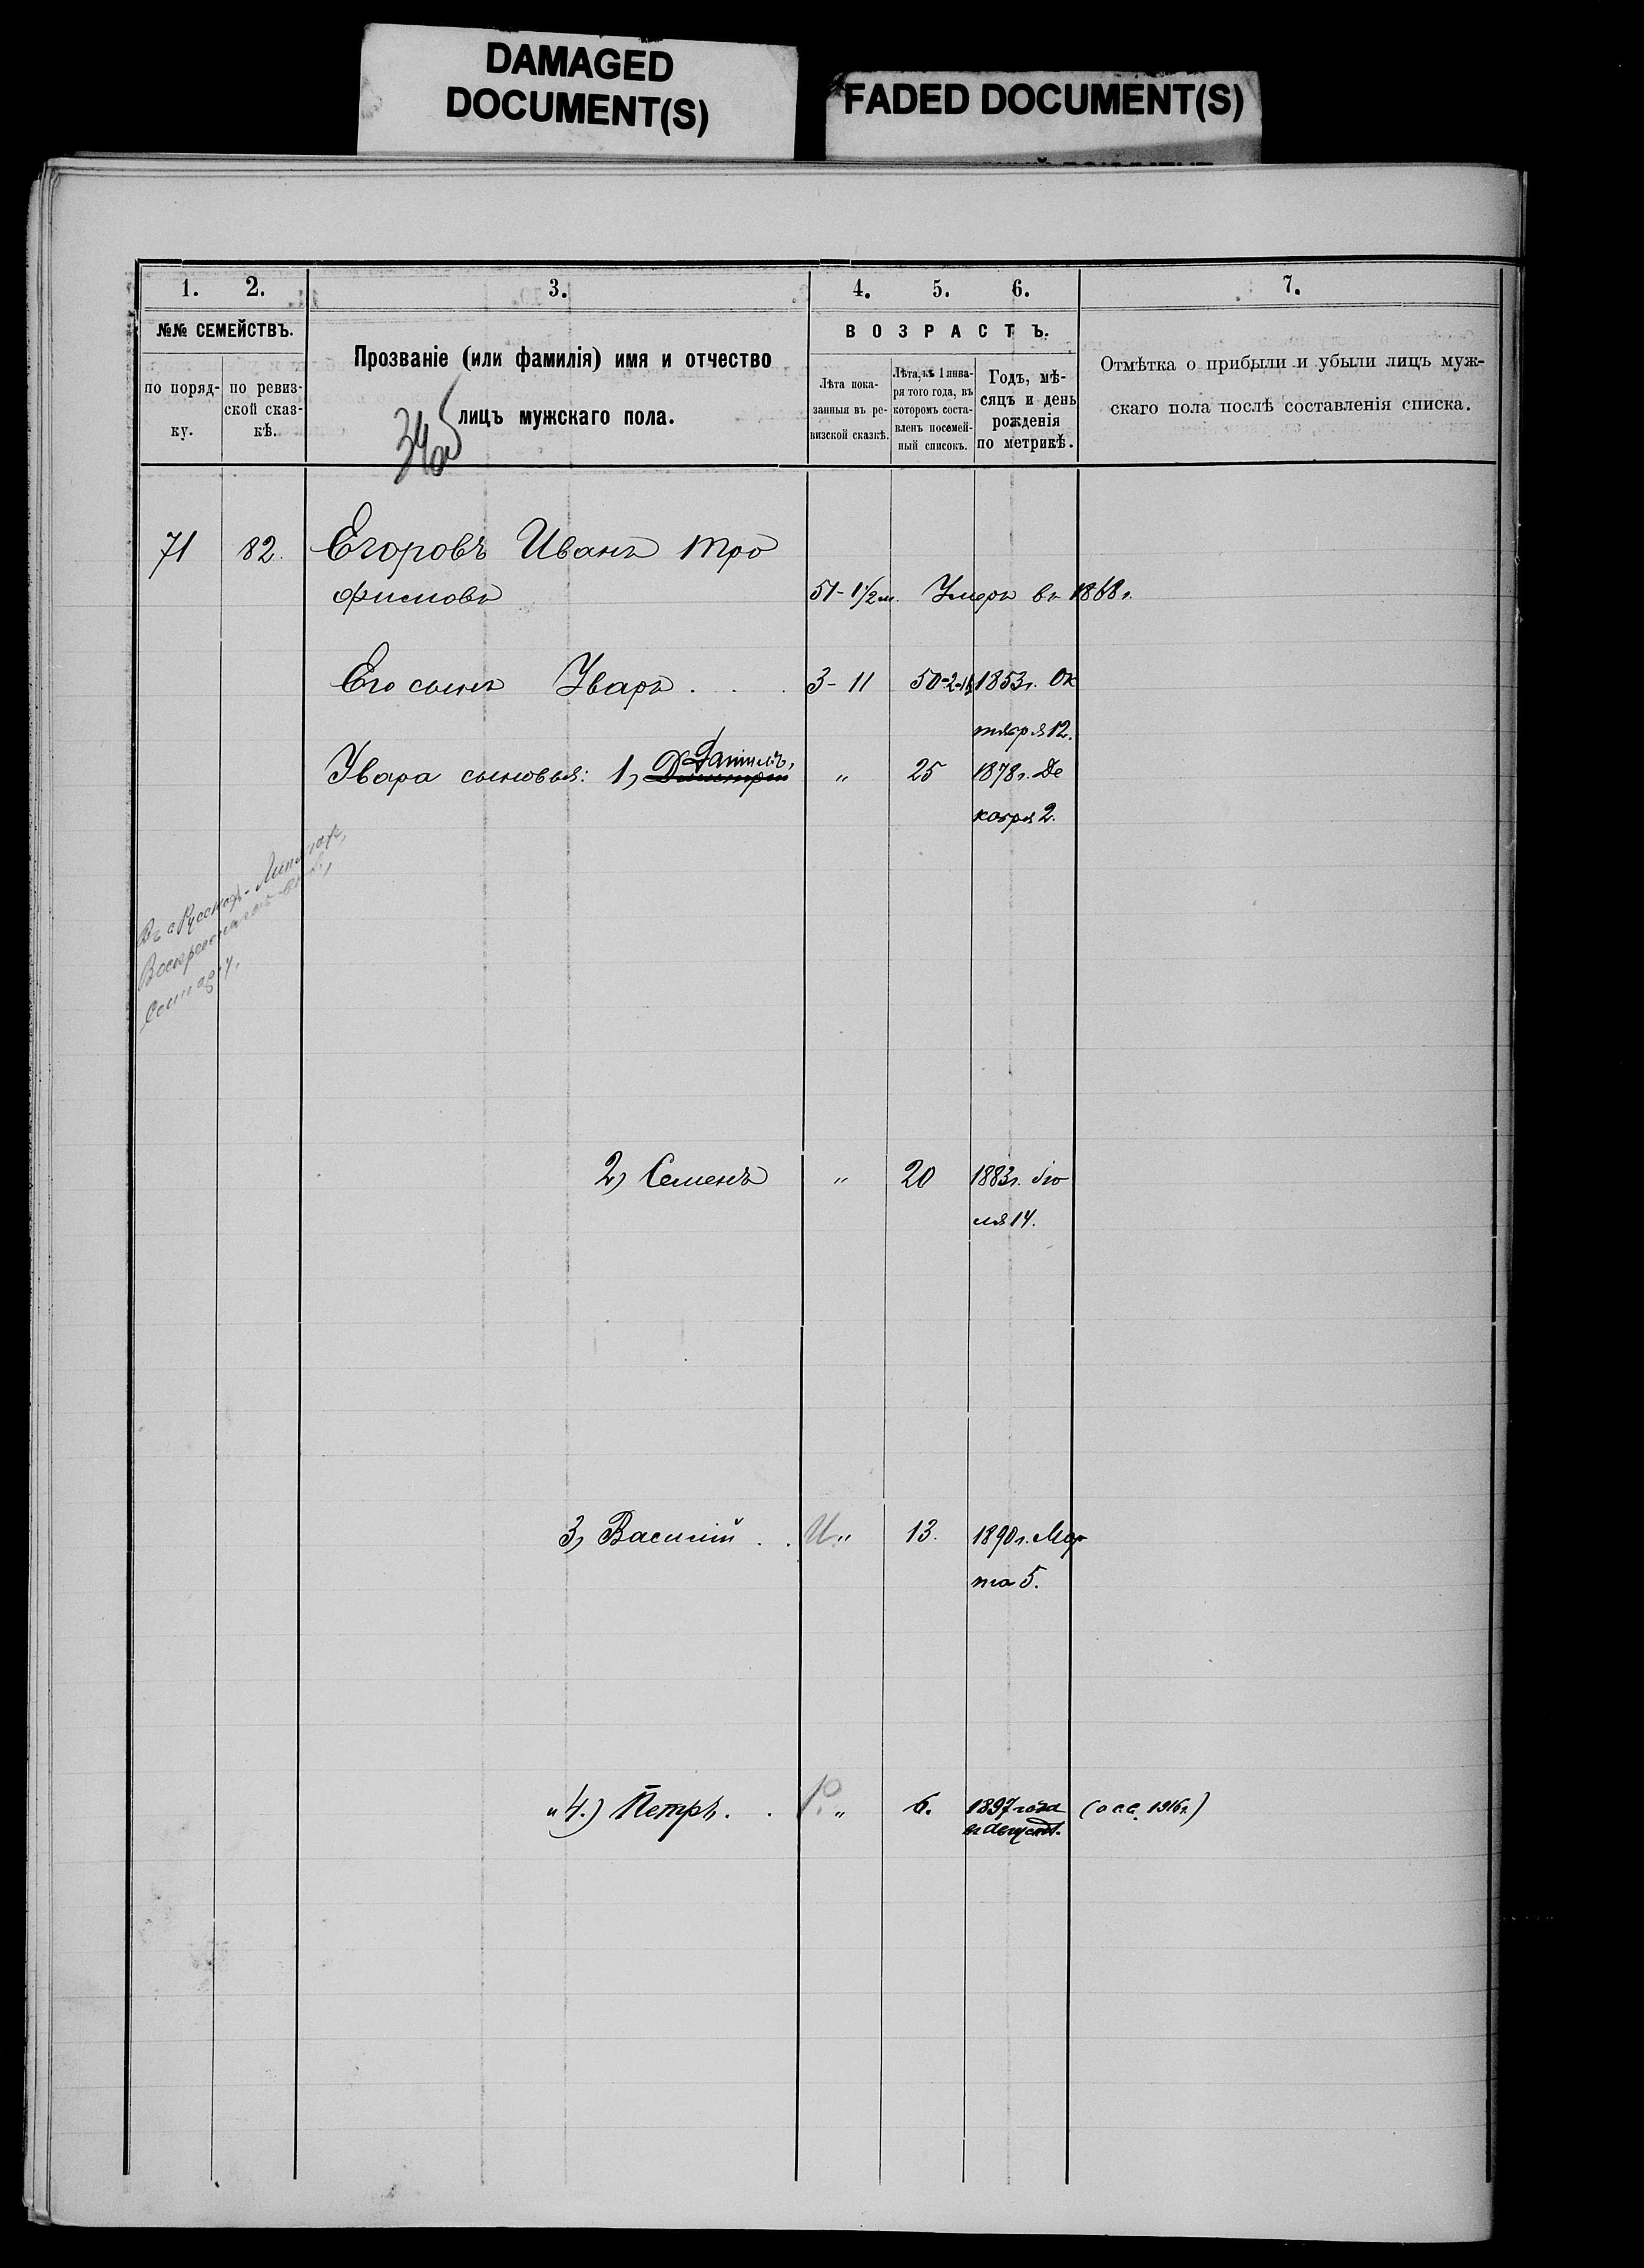 DAMAGED
DOCUMENT(S)
FADED DOCUMENT(S)
1. 2. 3. 4. 5. 6. 7.
№№ СЕМЕЙСТВЪ.
по поряд-
ку.
по ревиз-
ской сказ-
кѣ.
Прозваніе (или фамилія) имя и отчество
лицъ мужскаго пола.
ВОЗРАСТЪ.
Лѣта пока-
занныя въ ре-
визской сказкѣ.
Лѣта, къ 1 янва-
ря того года, въ
которомъ соста-
вленъ посемей-
ный списокъ.
Годъ, мѣ-
сяцъ и день
рожденія
по метрикѣ.
Отмѣтка о прибыли и убыли лицъ муж-
скаго пола послѣ составленія списка.
71 82. Егоровъ Иванъ Тро
фимовъ 51-1/2 м. Умеръ въ 1868 г.
Его сынъ Уваръ . . . 3-11 50-2-18 1853 г. Ок
тября 12.
Данилъ,
Увара сыновья: 1, Дмитрій " 25 1878 г. Де
кабря 2.
2, Семенъ " 20 1883 г. Ію
ля 14.
3, Василій . . И " 13. 1890 г. Мар
та 5.
и 4.) Петръ . . Р. " 6. 1897 года (о с с. 1916 г.)